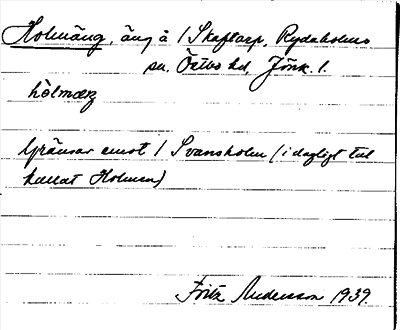 Holmäng, äng å 1 Skaftarp, Rydaholms
sn, Östbo hd, Jönk. l.
hòlmæŋ
Gränsar emot 1 Svansholm (i dagligt tal
kallat Holmen)
Fritz Andersson 1939.